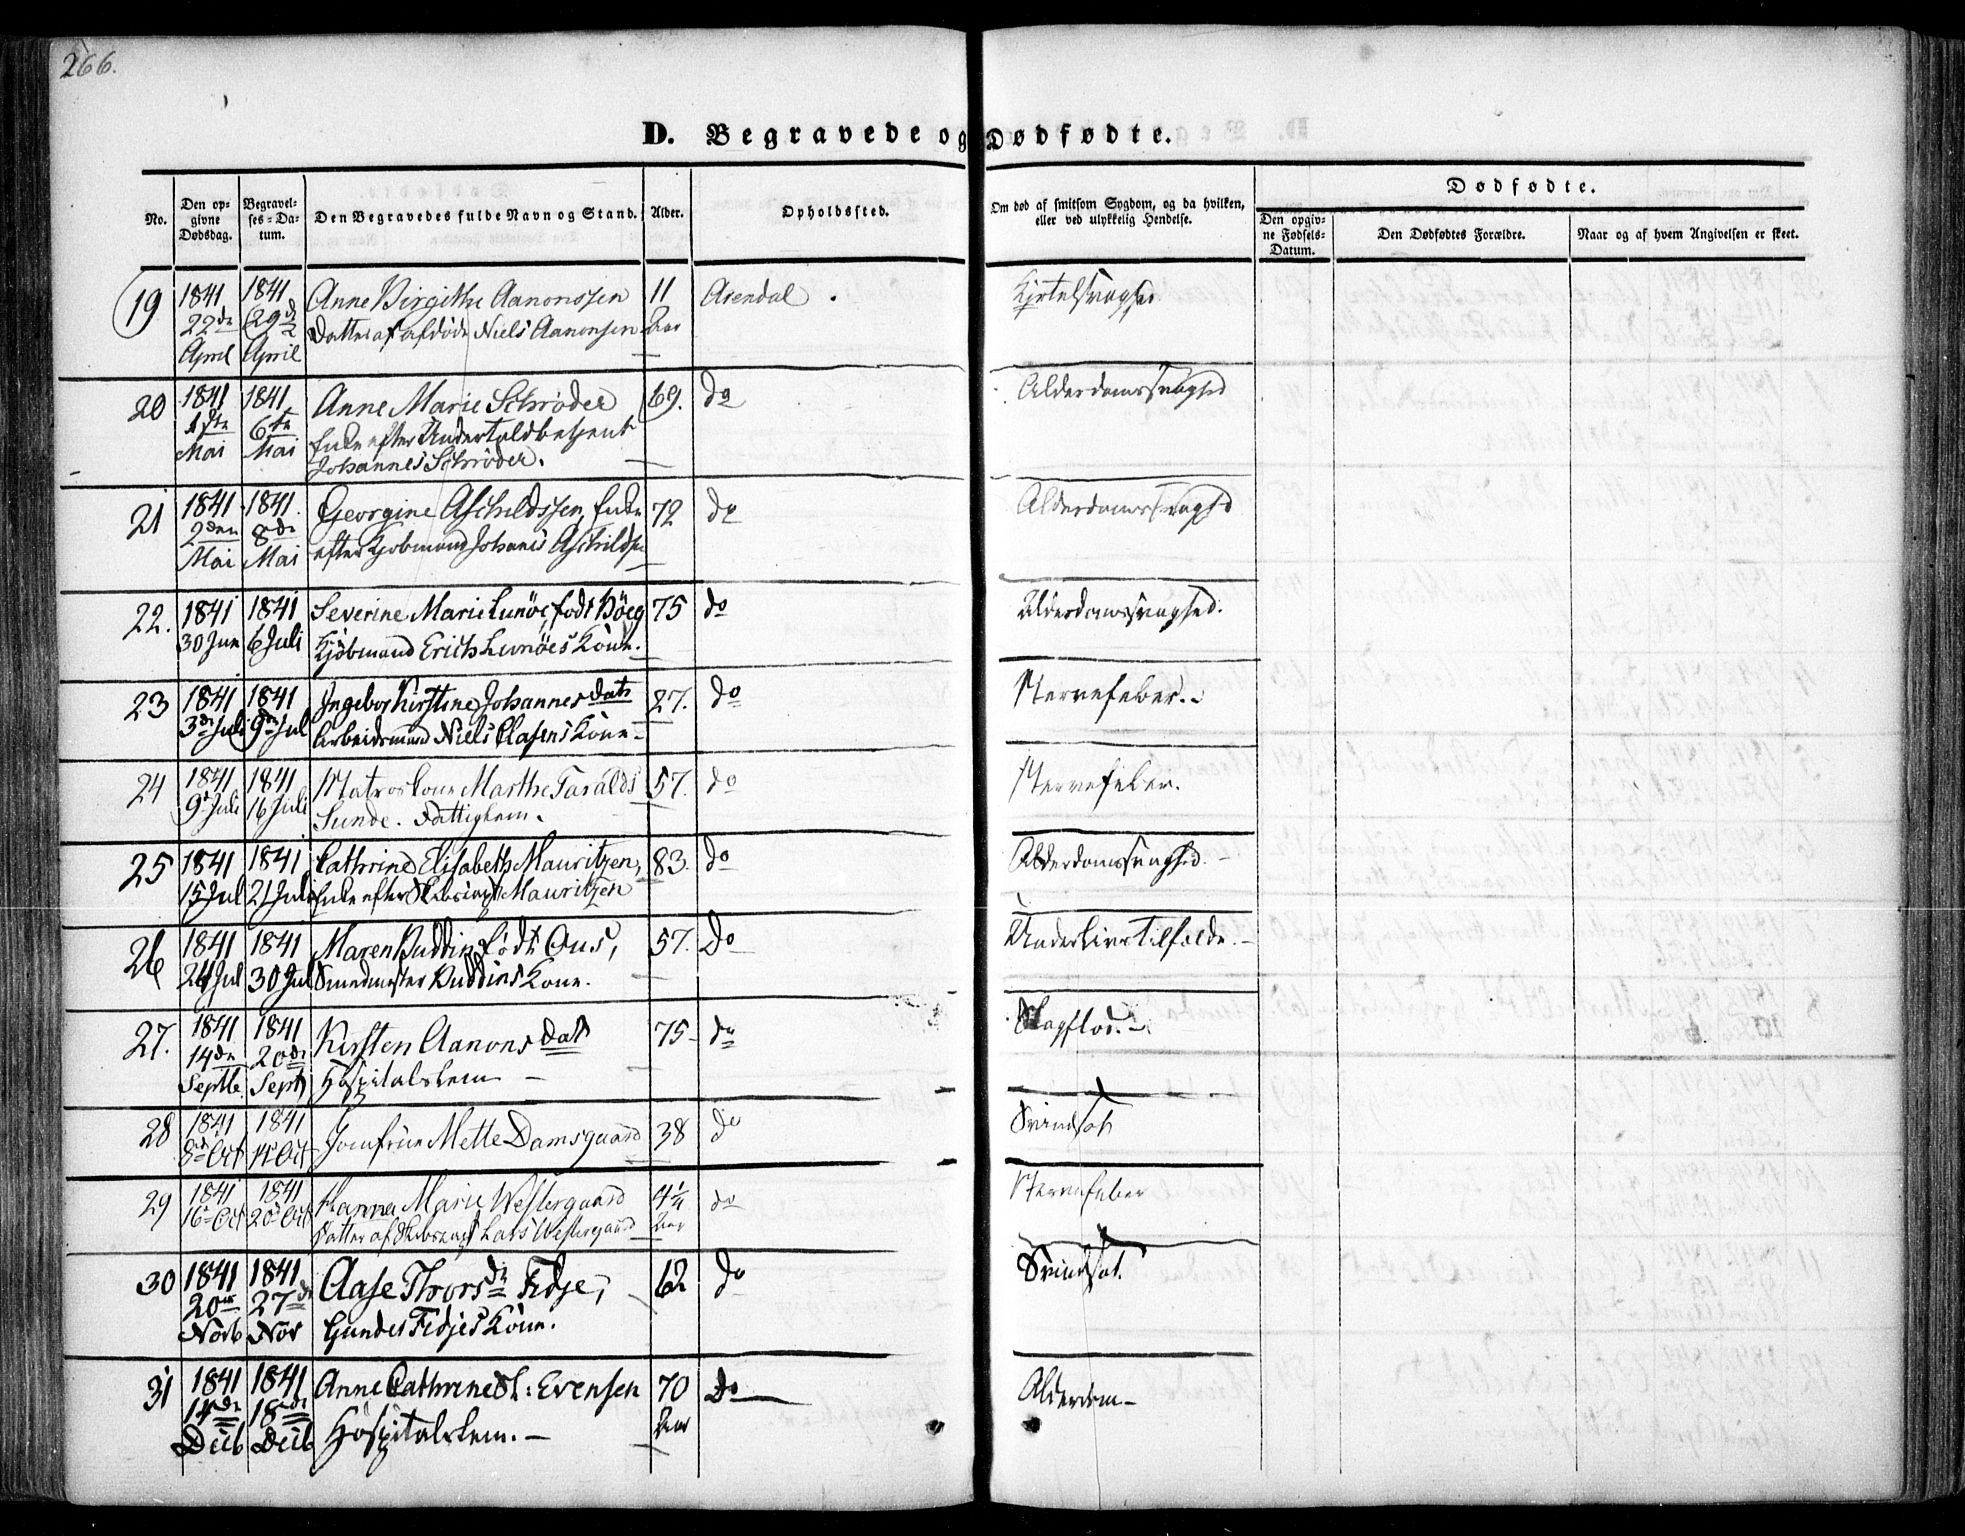 266.
D. Begravede og Dødfødte.
No.
Den op-
givne
Dødsdag.
Begravel-
ses-Da-
tum.
Den Begravedes fulde Navn og Stand.
Alder.
Opholdssted.
Om død af smitsom Sygdom, og da hvilken,
eller ved ulykkelig Hendelse.
Dødfødte.
Den opgiv-
ne Fødsels-
Datum.
Den Dødfødtes Forældre.
Naar og af hvem Angivelsen er skeet.
19 1841 1841 Anne Birgithe Aanonssen 11 Arendal. Kjertelsvaghed
22de 29de Datter af afdøde Niels Aanonsen Aar
April April
20 1841 1841 Anne Marie Schrøder 69. do Alderdomssvaghed
1ste 6te Enke efter Undertoldbetjent
Mai Mai Johannes Schrøder.
21 1841 1841 Georgine Aschildssen, Enke 72 do Alderdomssvaghed
2den 8de efter Kjøbmand Johanes
Mai Mai
22. 1841 1841 Severine Marie Lunöe, født Höeg 75 do Alderdomssvaghed.
30 Jun 6 Juli Kjöbmand Erich Lunöes Kone.
23 1841 1841 Ingebor Kirstine Johannesdatr 27. do Nervefeber.
3de Juli 9de Jul Arbeidsmand Niels Clasens Kone
24 1841 1841 Matroskone Marthe Taralds 57. do Nervefeber.
9d Juli 16 Juli Sunde. Fattiglem.
25 1841 1841 Cathrine Elisabeth Mauritzen, 83. do Alderdomssvaghed.
15 Jul 21 Juli Enke efter Mauritzen
26 1841 1841 Maren Buddin, født Ous, 57. Do Underlivstilfælde.
24 Jul 30 Jul Smedmester Buddins Kone.
27. 1841 1841 Kirsten Aanonsdatr 75 do Slagflod.
14de 20de Hospitalslem
Septb Sept
28 1841 1841 Jomfrue Mette Damsgaard 38 do Svindsot
8de Oct 14 Oct
29 1841 1841 Hanna Marie Westergaard 4¼ do Nervefeber
16 Oct 20 Oct Datter af Lars Westergaard Aar
30 1841 1841 Aase Thorsdr Fidje, 62 do Svindsot.
20de 27de Gundes Fidjes Kone.
Novb Nov
31 1841 1841 Anne Cathrine Evensen 70 Do Alderdom
14de 18de Hospitalslem. Aar
Decb Decb